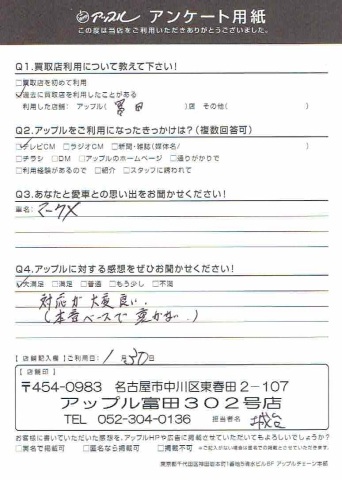 アップル アンケート用紙
この度は当店をご利用いただきありがとうございました。
Q1.買取店利用について教えて下さい!
□買取店を初めて利用
☑過去に買取店を利用したことがある
利用した店舗: アップル( 富田 )店 その他( )
Q2.アップルをご利用になったきっかけは?(複数回答可)
☑テレビCM □ラジオCM □新聞・雑誌(媒体名/ )
□チラシ □DM □アップルのホームページ □通りがかりで
□利用経験があるので □紹介 □スタッフに誘われて
Q3.あなたと愛車との思い出をお聞かせください!
車名: マークX
Q4.アップルに対する感想をぜひお聞かせください!
☑大満足 □満足 □普通 □もう少し □不満
対応が大変良い.
【店舗記入欄】ご利用日: 1月30日
【店舗印】
〒454-0983 名古屋市中川区東春田2-107
アップル富田302号店
TEL 052-304-0136 担当者名:
お客様に書いていただいた感想を、アップルHPや広告に掲載させていただいてもよろしいでしょうか?
□実名で掲載可 □匿名なら掲載可 □掲載不可 ※ご記入がない場合は匿名での掲載とさせていただきます。